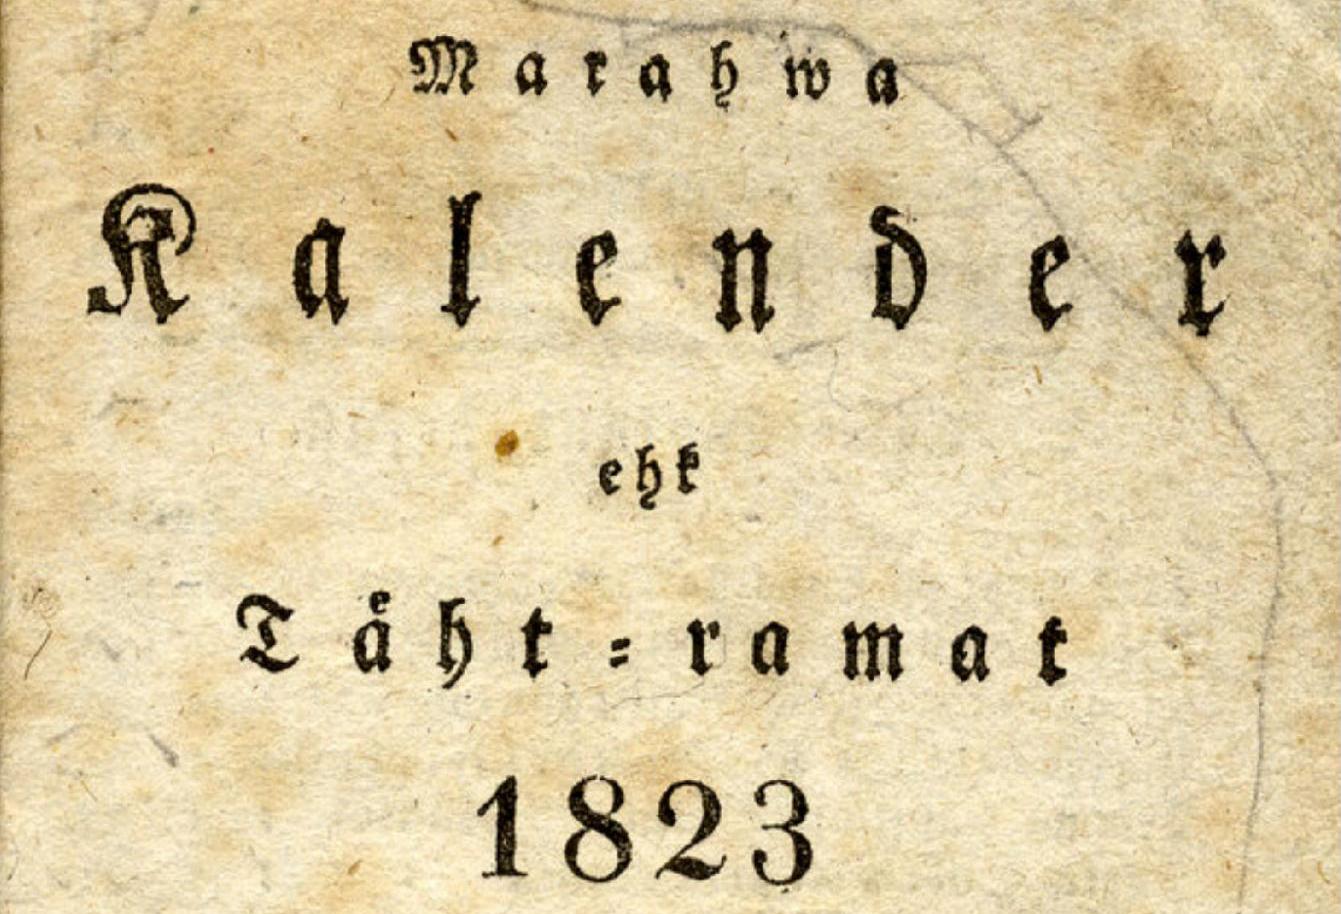 Marahwa
Kalender
ehk
Täht-ramat
1823